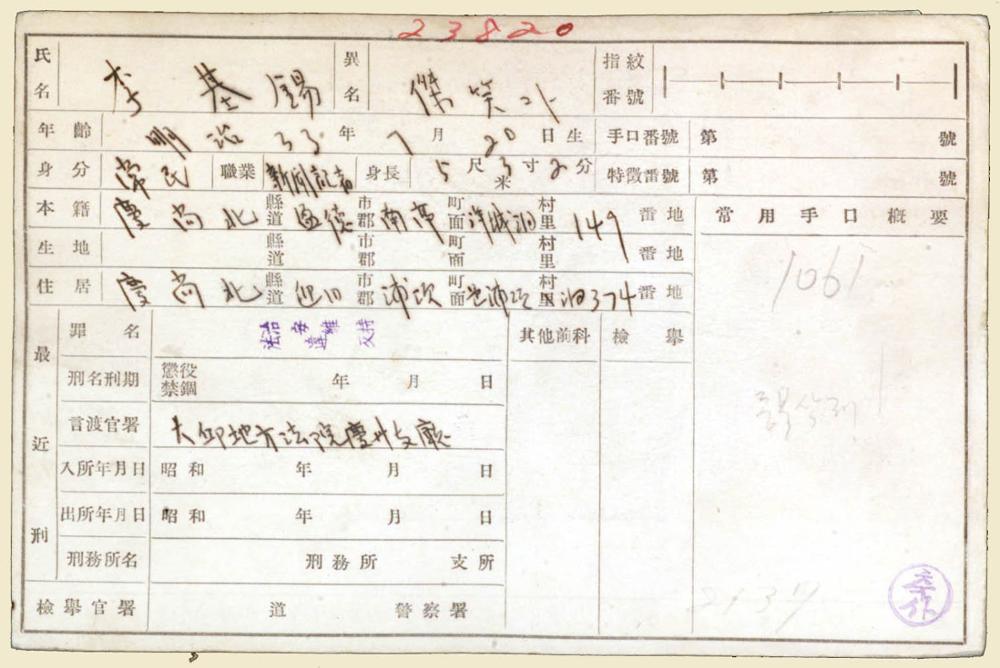 23820
氏名 李基錫 異名 傑笑 指紋番號
年齡 明治33年7月20日生 手口番號 第 號
身分 常民 職業 新聞記者 身長 5尺米3寸2分 特徵番號 第 號
本籍 慶尚北縣道 盈德市郡 南亭町面 村里 149番地 常用手口概要
生地 縣道 市郡 町面 村里 番地
1061
住居 慶尚北縣道 迎日市郡 浦項町面 浦項村里 374番地
最近刑
罪名 治安維持法違反 其他前科 檢擧
刑名刑期 懲役禁錮 年 月 日
言渡官署 大邱地方法院慶州支廳
入所年月日 昭和 年 月 日
出所年月日 昭和 年 月 日
刑務所名 刑務所 支所
檢擧官署 道 警察署